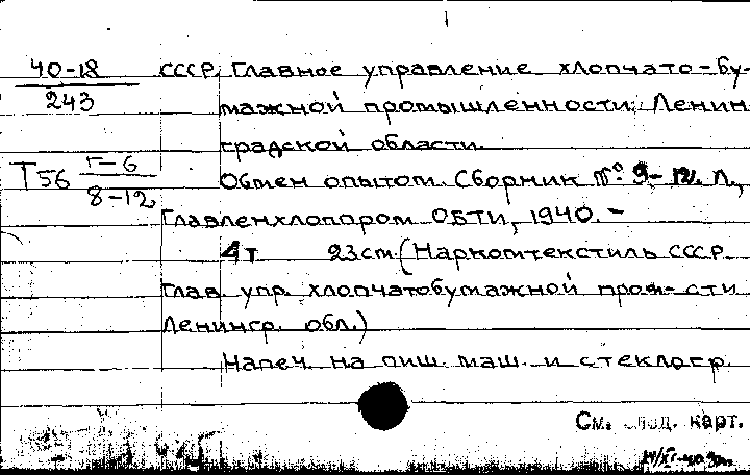 40-18 СССР, Главное управление хлопчато-бу-
243 мажной промышленности, Ленин
градской области.
Т56 Г-6 Обмен опытом. Сборник №: 9-12. Л.,
8-12 Главленхлоппром ОБТИ, 1940.-
4 т 23 см. (Наркомтекстиль СССР.
Глав. упр. хлопчатобумажной пром-сти
Ленингр. обл.)
Напеч. на пиш. маш. и стеклогр.
См. след. карт.